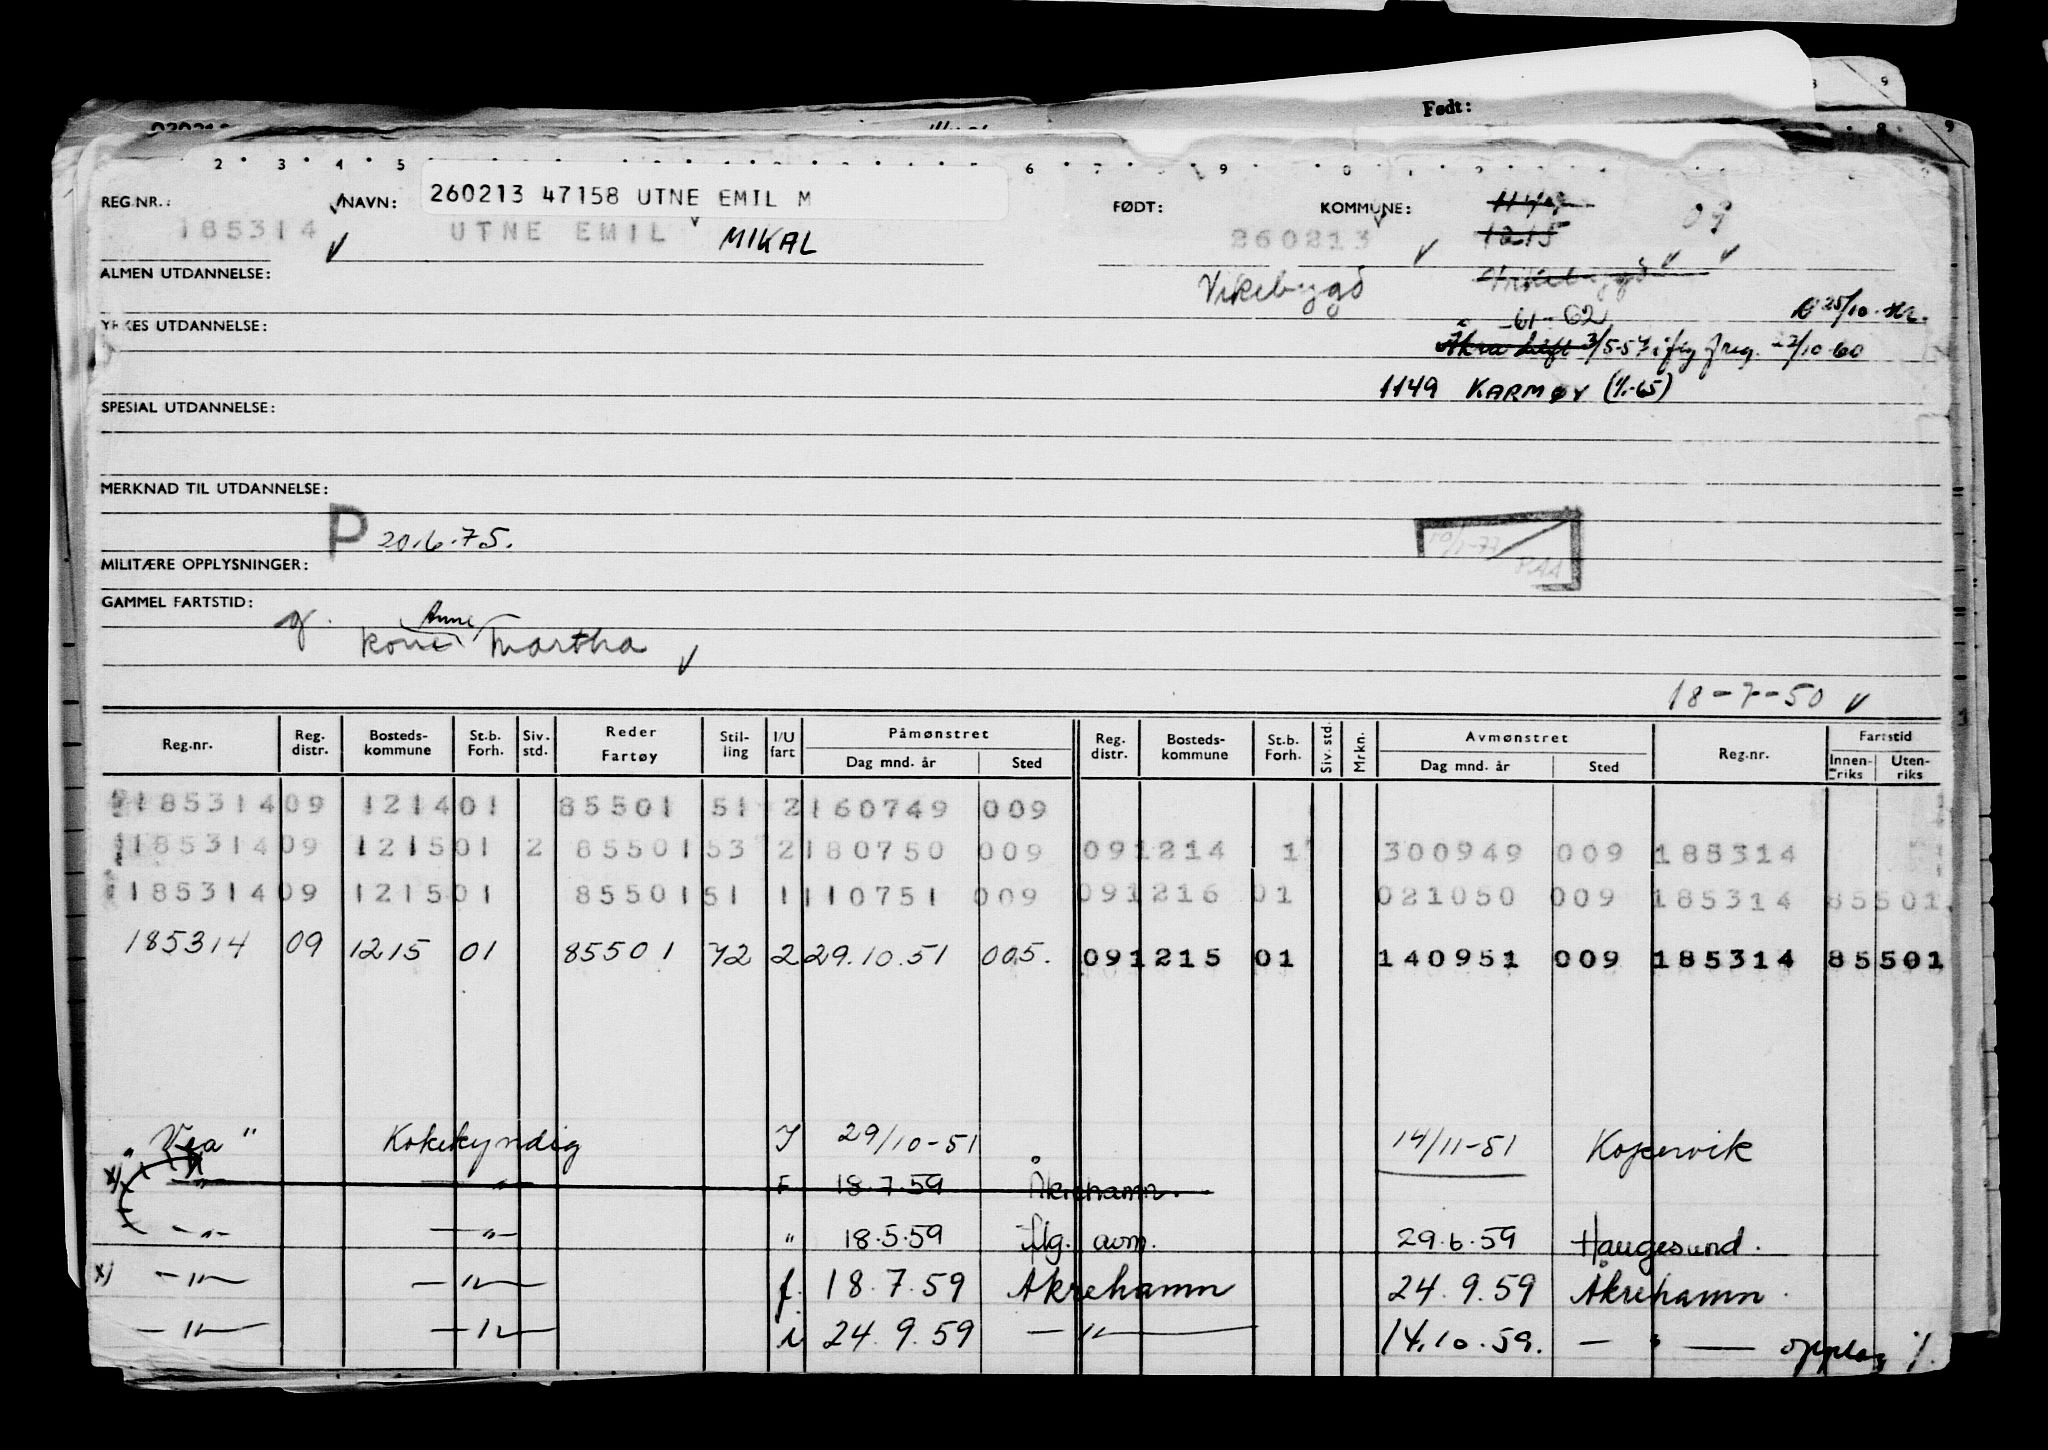 Født:
2 3 4 5 6 7 8 9
REG.NR.: NAVN: 260213 47158 UTNE EMIL M FØDT: KOMMUNE: 09
185314 UTNE EMIL MIKAL 260213 1215
ALMEN UTDANNELSE: Vikebygd Vikebygd
YRKES UTDANNELSE: 61-62 25/10
Åkra 3/5-57 22/10-60
1149 KARMØY (1/1-65)
SPESIAL UTDANNELSE:
MERKNAD TIL UTDANNELSE:
P 20.6.75.
MILITÆRE OPPLYSNINGER:
GAMMEL FARTSTID:
g. kone Anne Martha
18-7-50
Reg.nr. Reg. distr. Bosteds-kommune St.b. Forh. Siv. std. Reder Fartøy Stil-ling I/U fart Påmønstret Dag mnd. år Sted Reg. distr. Bosteds-kommune St.b. Forh. Siv. std. Mrkn. Avmønstret Dag mnd. år Sted Reg.nr. Fartstid Innen-riks Uten-riks
185314 09 1214 01 85501 51 2 160749 009
185314 09 1215 01 2 85501 53 2 180750 009 09 1214 1 300949 009 185314
185314 09 1215 01 85501 51 1 110751 009 09 1216 01 021050 009 185314 85501
185314 09 1215 01 85501 72 2 29.10.51 005. 09 1215 01 140951 009 185314 85501
"Vea" Kokekyndig I 29/10-51 14/11-51 Kopervik
x) —"— —"— F 18.7.59 Åkrehamn.
—"— —"— " 18.5.59 avm. 29.6.59 Haugesund.
x) —"— —"— f. 18.7.59 Åkrehamn 24.9.59 Åkrehamn.
—"— —"— i 24.9.59 —"— 14.10.59. —"— opplag